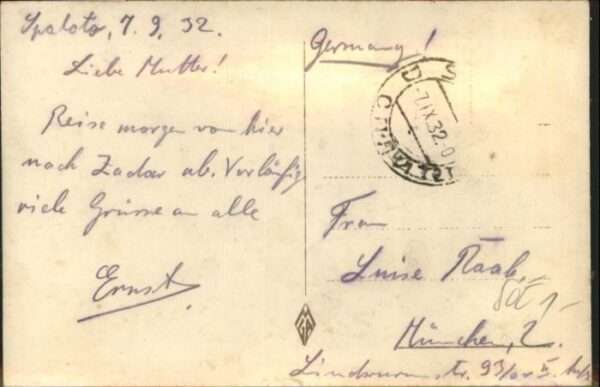 Spalato, 7. 9. 32.
Liebe Mutter!
Reise morgen von hier
nach Zadar ab. Vorläufig
viele Grüsse an alle
Ernst
Germany!
7.IX.32.
Frau
Luise Raab
München, 2.
Lindwurmstr. 93/